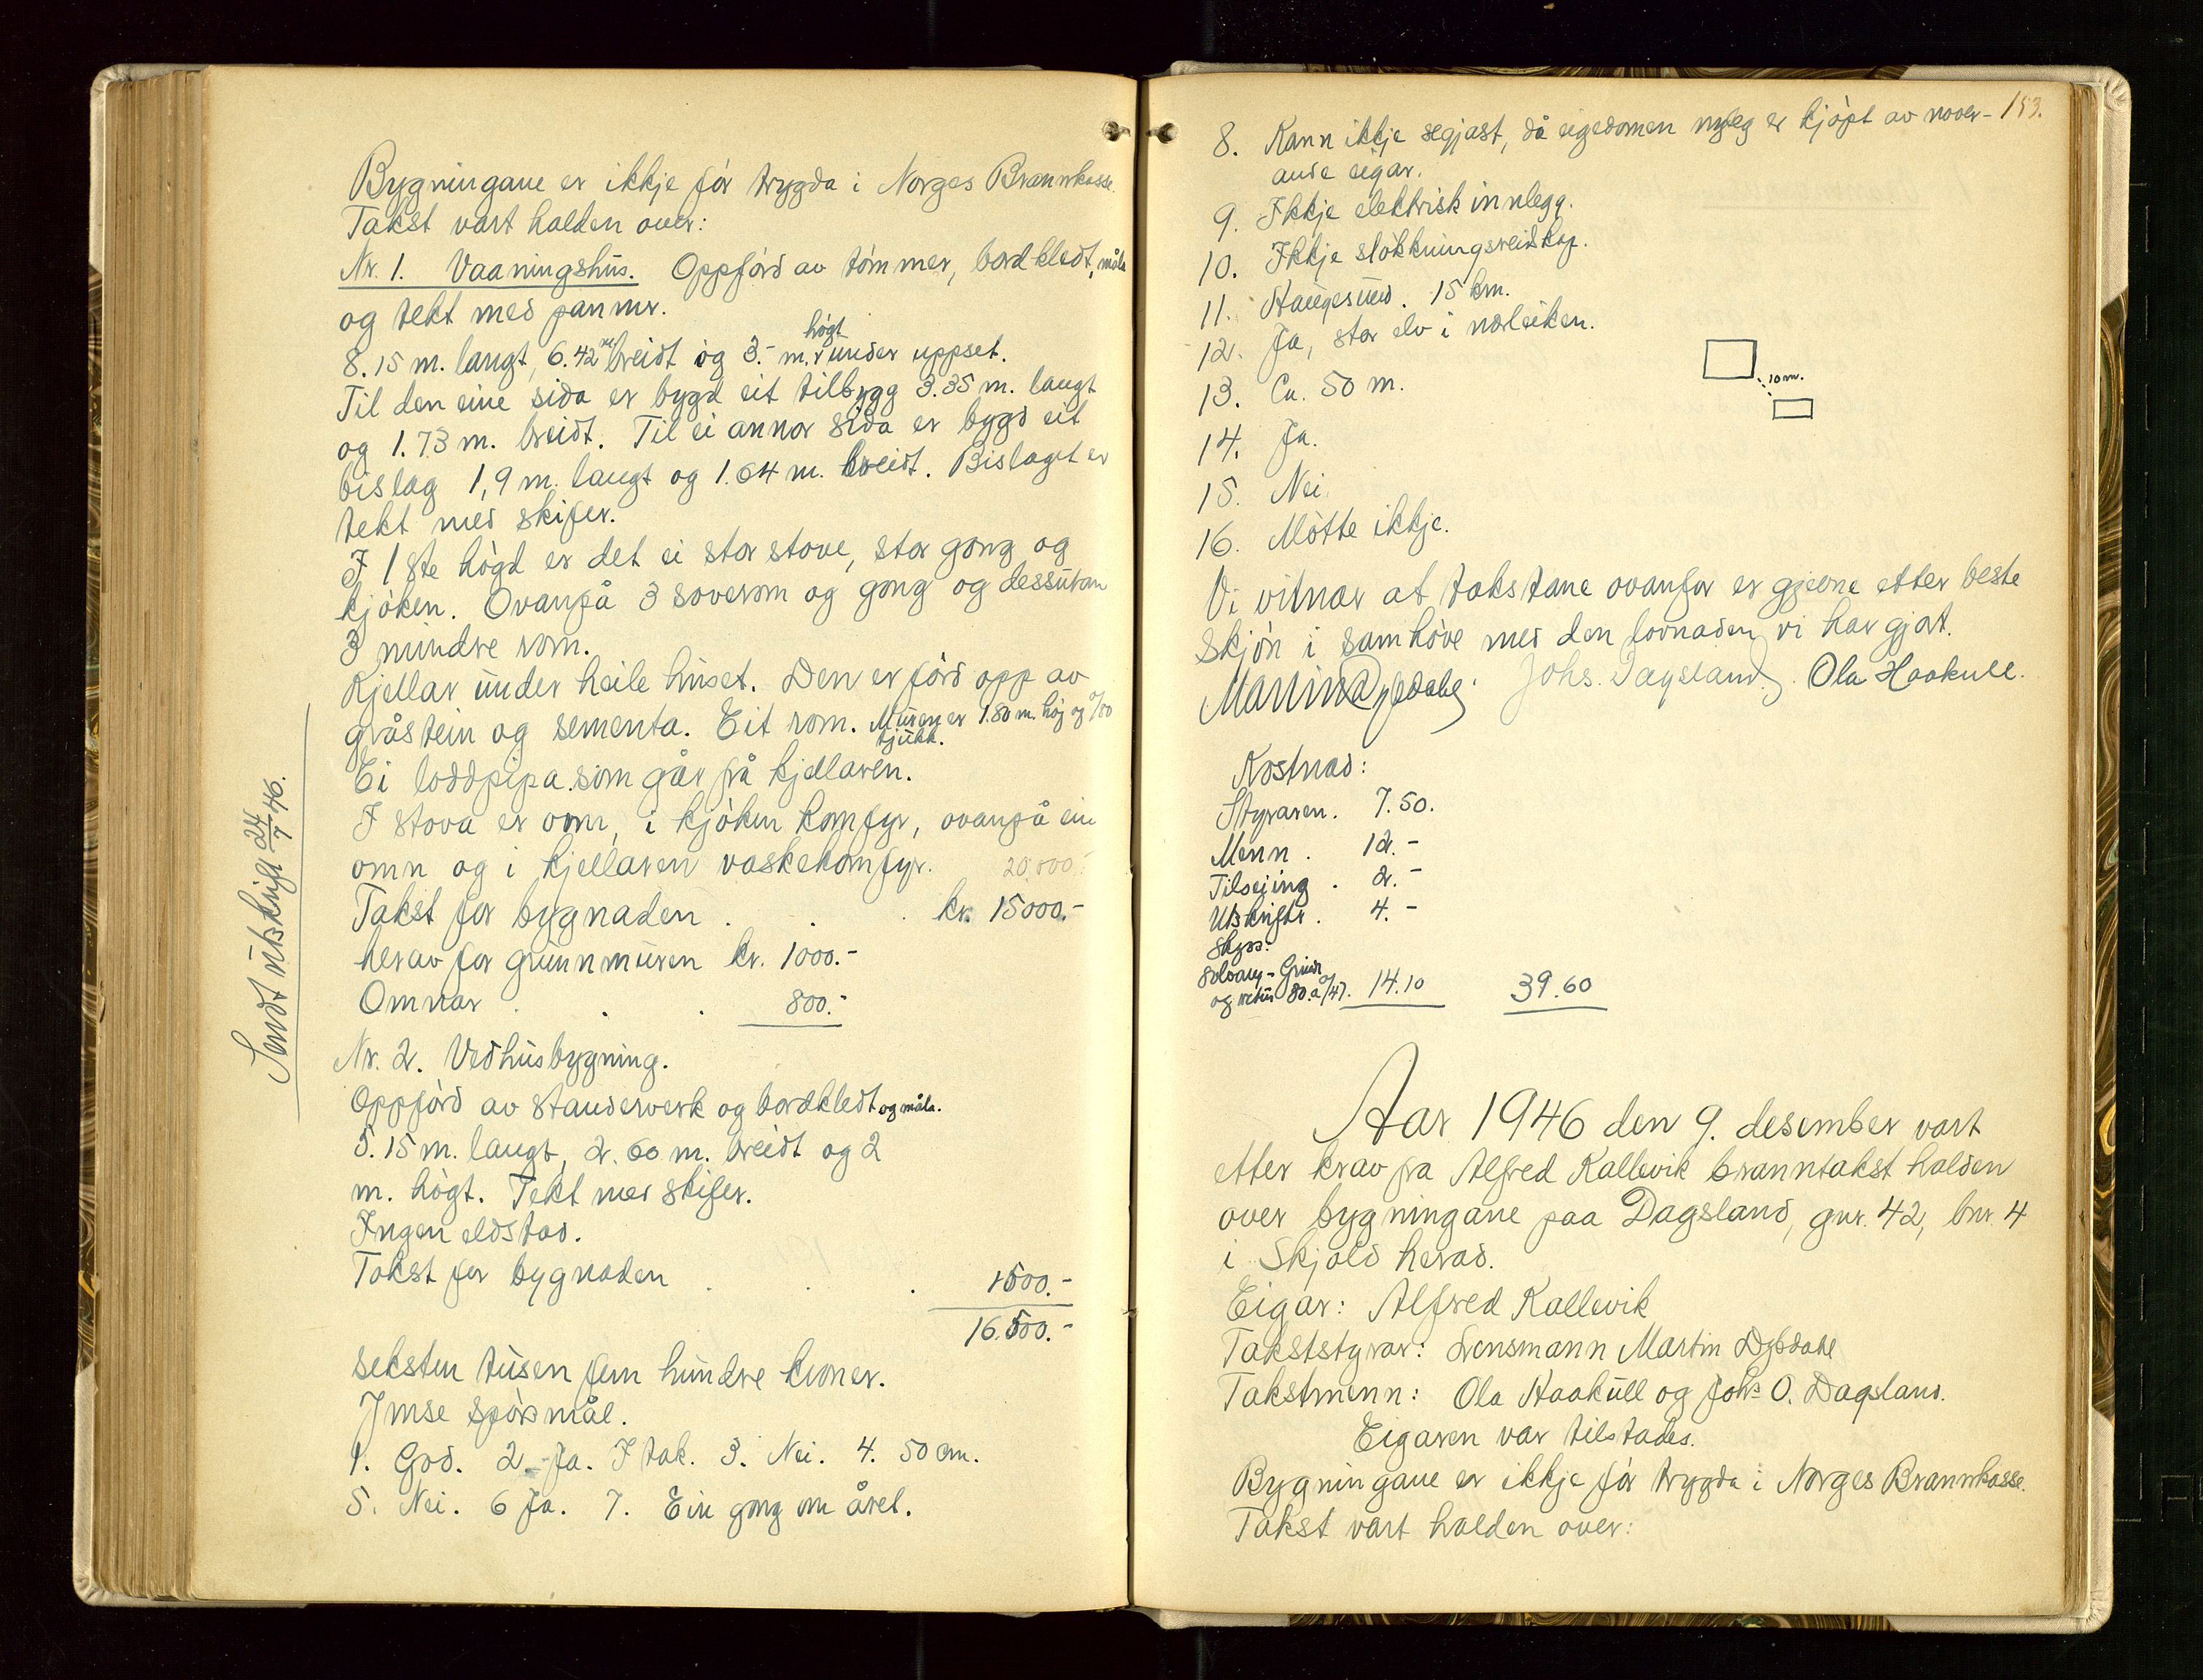 Bygningane er ikkje fór trygda i Norges Brannkasse.
Takst vart halden over:
Nr. 1. Vaaningshus. Oppfórd av tómmer, bordkledt, måla
og tekt med pannr.
8.15 m. langt, 6.42 m breidt og 3.- m. högt under uppset.
Til den eine sida er bygd eit tilbygg 3.35 m. langt
og 1.73 m. breidt. Til ei annor sida er bygd eit
bislag 1,9 m. langt og 1.64 m. breidt. Bislaget er
tekt med skifer.
I 1ste högd er det ei stor stove, stor gong og
kjóken. Ovanpå 3 soverom og gong og dessutan
3 mindre rom.
Kjellar under heile huset. Den er fórd opp av
gråstein og sementa. Eit rom. Muren er 1.80 m. höj og 0/50
tjukk.
Ei loddpipa som går frå kjellaren.
I stova er omn, i kjóken komfyr, ovanpå ein
omn og i kjellaren vaskekomfyr. 20.000.-
Takst for bygnaden . . . kr. 15000.-
herav for grunnmuren kr. 1000.-
Omnar . . . 800.-
Nr. 2. Vedhusbygning.
Oppfórd av standerverk og bordkledt og måla.
5.15 m. langt, 2.60 m. breidt og 2
m. högt. Tekt med skifer.
Ingen eldstad.
Takst for bygnaden . . . 1500.-
16.500.-
seksten tusen fem hundre kroner.
Imse spörsmål.
1. God. 2. Ja. I tak. 3. Nei. 4. 50 cm.
5. Nei. 6 Ja. 7. Ein gong om året.
Sendt utskrift 24/7 46.
153.
8. Kann ikkje segjast, då eigedomen nyleg er kjöpt av nover-
ande eigar.
9. Ikkje elektrisk innlegg.
10. Ikkje slökkningsreidskap.
11. Haugesund. 15 km.
12. Ja, stor elv i nærleiken.
13. Ca. 50 m.
10 m.
14. Ja.
15. Nei.
16. Mötte ikkje.
Vi vitnar at takstane ovanfor er gjevne etter beste
skjón i samhöve med den lovnaden vi har gjort.
Martin Dybdahl. Johs. Dagsland. Ola Haakull.
Kostnad:
Styraren. 7.50.
Menn. 12.-
Tilsejing. 2.-
Utskriftr. 4.-
Skyss:
Solvang - Grind
og retur 30. a 0/47. 14.10 39.60
Aar 1946 den 9. desember vart
etter krav fra Alfred Kallevik branntakst halden
over bygningane paa Dagsland, gnr. 42, bnr. 4
i Skjold herad.
Eigar: Alfred Kallevik
Takststyrar: Lensmann Martin Dybdahl
Takstmenn: Ola Haakull og Johs O. Dagsland.
Eigaren var tilstades.
Bygningane er ikkje fór trygda i Norges Brannkasse.
Takst vart halden over: